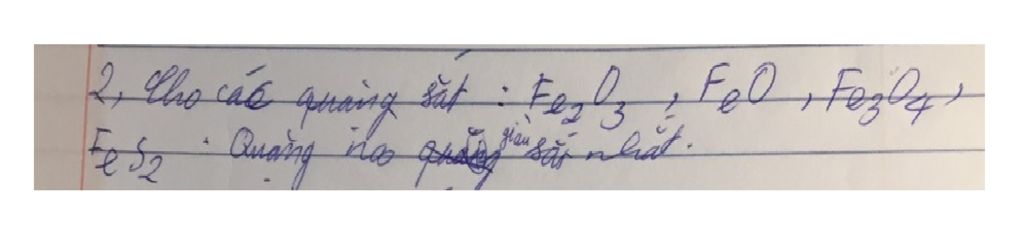 2, Cho các quặng sắt : Fe2O3 , FeO , Fe3O4 ,
FeS2 . Quặng nào giàu sắt nhất.